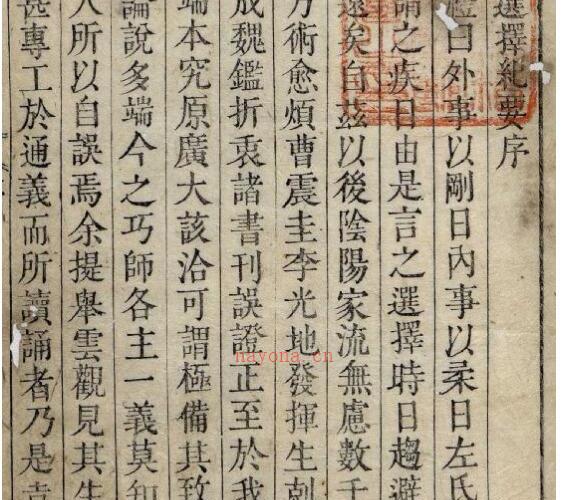 選擇紀要序
禮曰外事以剛日內事以柔日左氏
謂之疾日由是言之選擇時日趨避
遠矣自茲以後陰陽家流無慮數千
方術愈煩曹震圭李光地發揮生剋
成魏鑑折衷諸書刊誤證正至於我
端本究原廣大該洽可謂極備其致
論說多端今之巧師各主一義莫知
人所以自誤焉余提舉雲觀見其生
甚專工於通義而所讀誦者乃是
nayona.cn